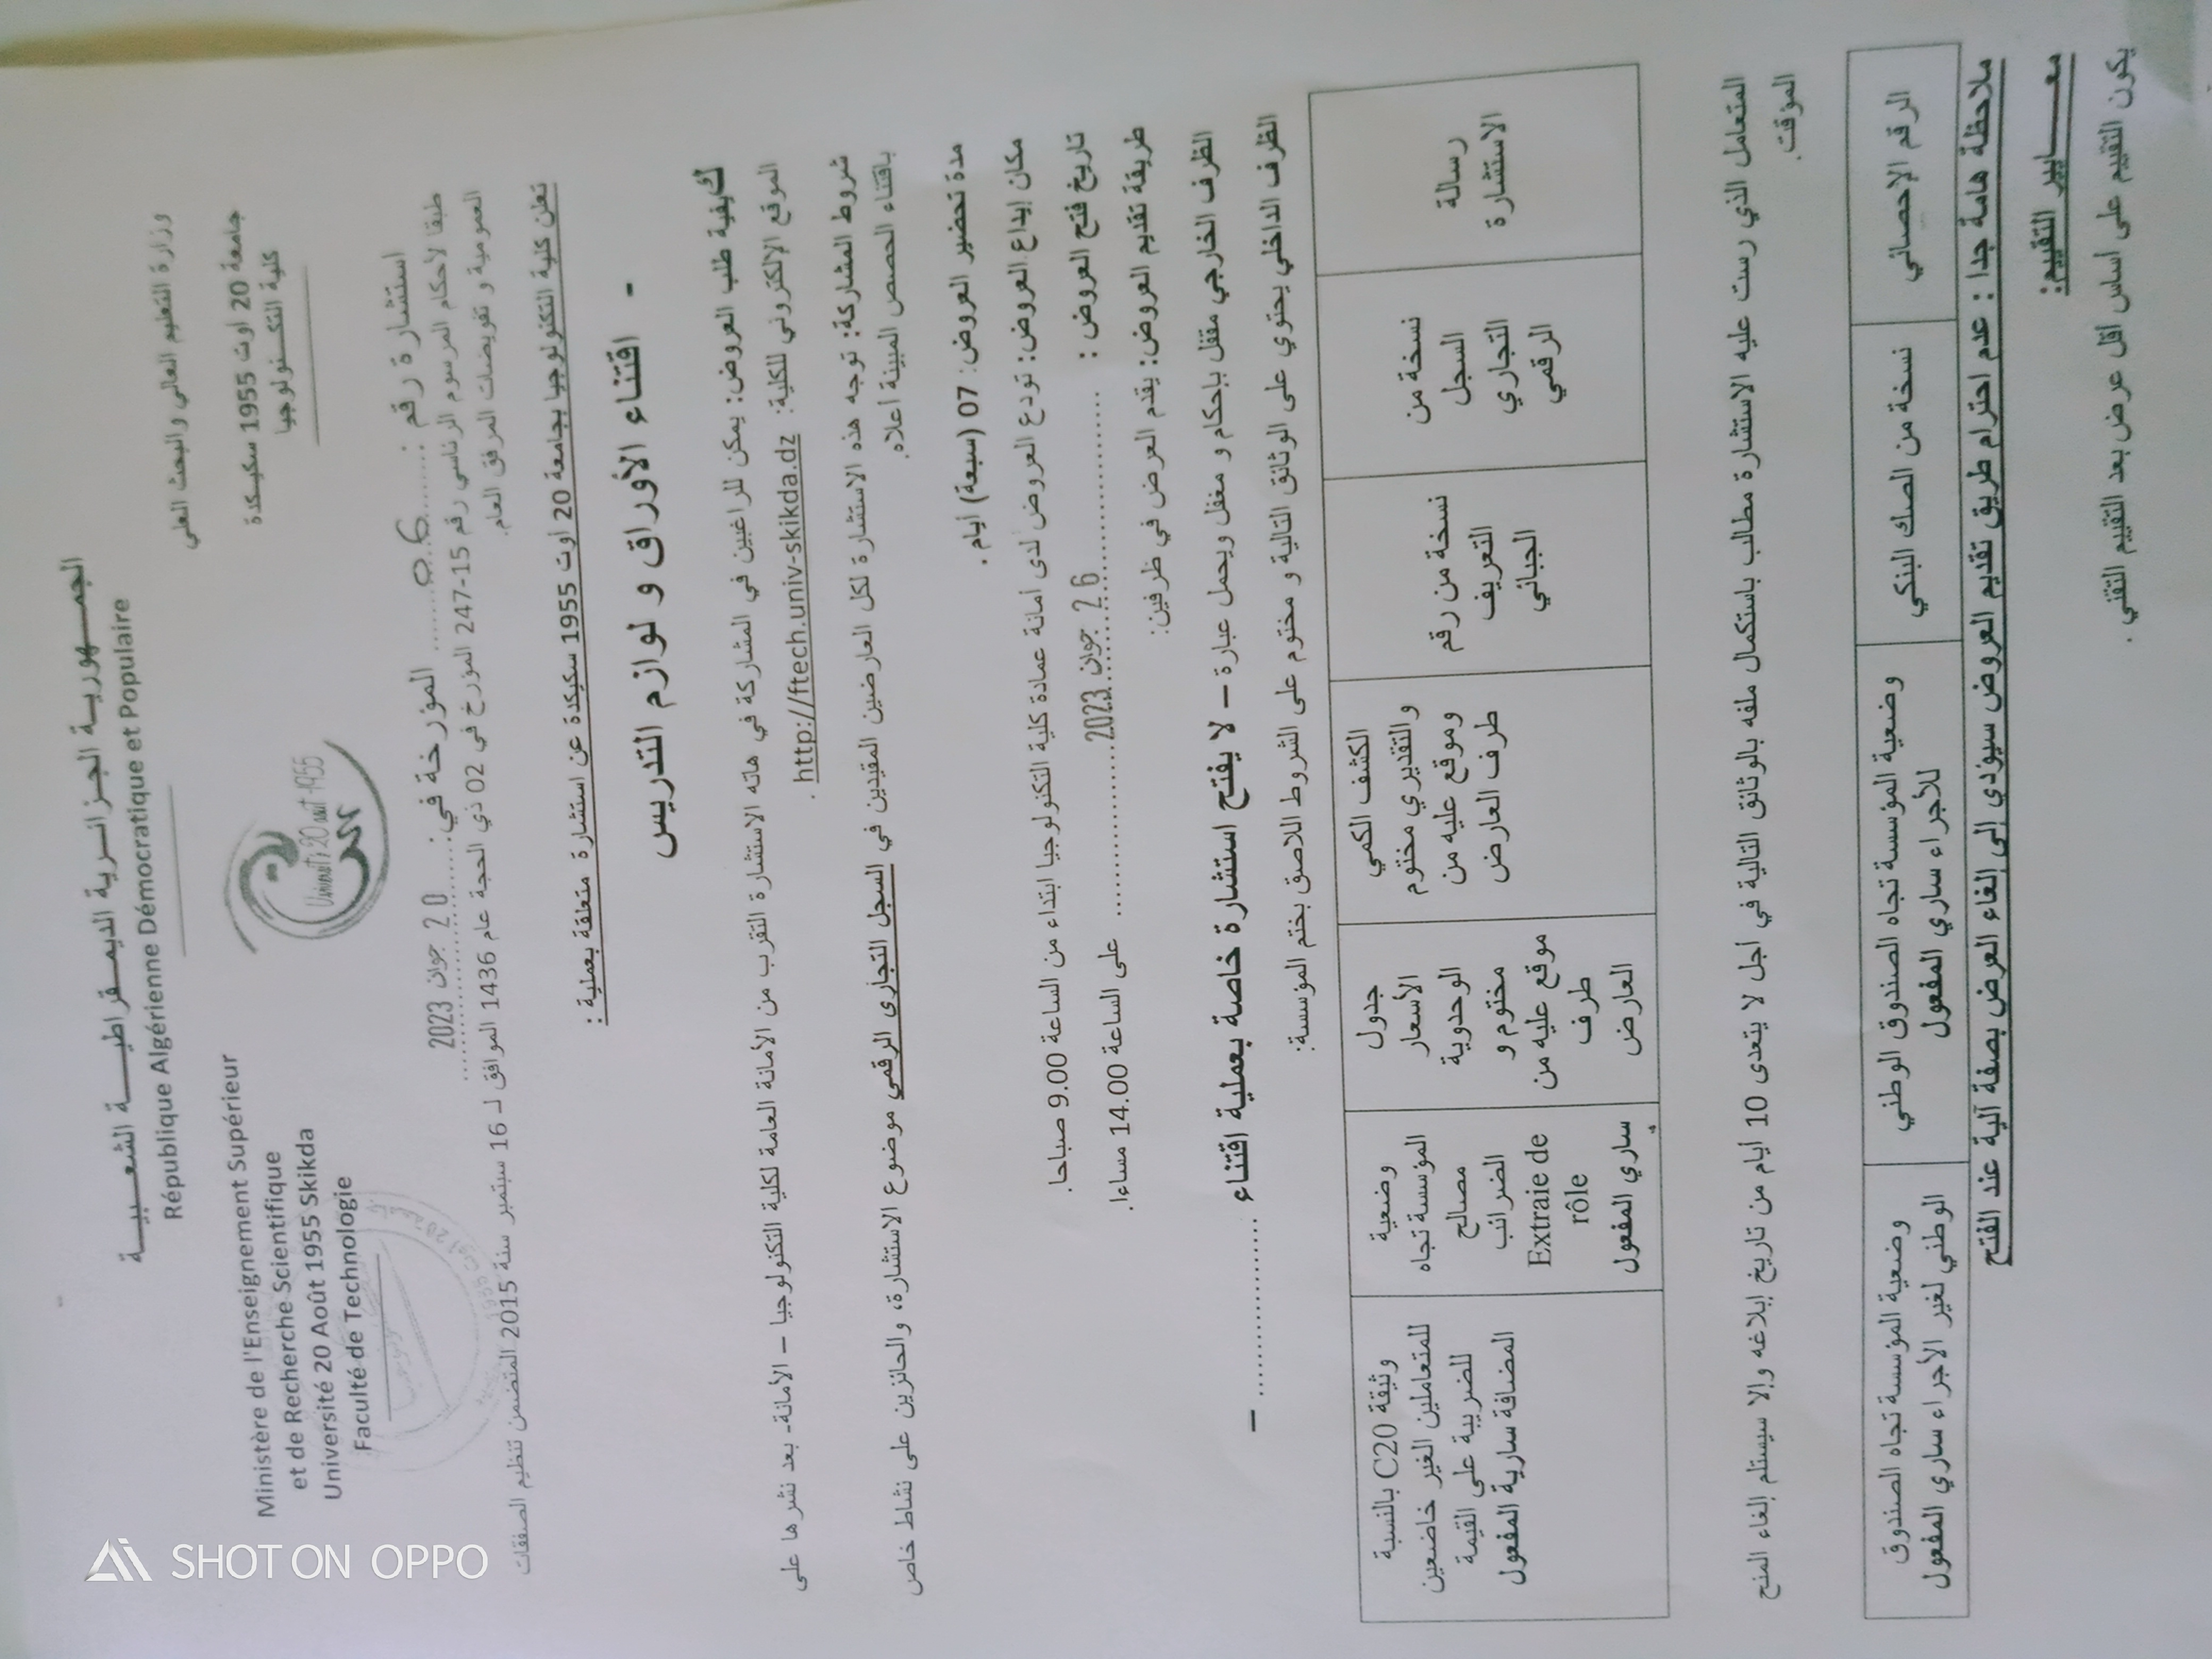 الجمهورية الجزائرية الديمقراطية الشعبية
République Algérienne Démocratique et Populaire
وزارة التعليم العالي والبحث العلي
جامعة 20 اوت 1955 سكيكدة
كلية التكنولوجيا
Ministère de l'Enseignement Supérieur
et de Recherche Scientifique
Université 20 Août 1955 Skikda
Faculté de Technologie
Université 20 août 1955
استشارة رقم : ......06...... المؤرخة في: 20 جوان 2023
طبقا لأحكام المرسوم الرئاسي رقم 15-247 المؤرخ في 02 ذي الحجة عام 1436 الموافق لـ 16 سبتمبر سنة 2015 المتضمن تنظيم الصفقات
العمومية و تفويضات المرفق العام.
تعلن كلية التكنولوجيا بجامعة 20 أوت 1955 سكيكدة عن استشارة متعلقة بعملية :
- اقتناء الأوراق و لوازم التدريس
كيفية طلب العروض: يمكن للراغبين في المشاركة في هاته الاستشارة التقرب من الأمانة العامة لكلية التكنولوجيا – الأمانة- بعد نشرها على
الموقع الإلكتروني للكلية: http://ftech.univ-skikda.dz .
شروط المشاركة: توجه هذه الاستشارة لكل العارضين المقيدين في السجل التجاري الرقمي موضوع الاستشارة، والحائزين على نشاط خاص
باقتناء الحصص المبينة أعلاه.
مدة تحضير العروض: 07 (سبعة) أيام .
مكان إيداع العروض: تودع العروض لدى أمانة عمادة كلية التكنولوجيا ابتداء من الساعة 9.00 صباحا.
تاريخ فتح العروض : ............26 جوان 2023............ على الساعة 14.00 مساءا.
طريقة تقديم العروض: يقدم العرض في ظرفين:
الظرف الخارجي مقفل بإحكام و مغفل ويحمل عبارة – لا يفتح استشارة خاصة بعملية اقتناء .................. –
الظرف الداخلي يحتوي على الوثائق التالية و مختوم على الشروط اللاصق بختم المؤسسة:
رسالة الاستشارة
نسخة من السجل التجاري الرقمي
نسخة من رقم التعريف الجبائي
الكشف الكمي والتقديري مختوم وموقع عليه من طرف العارض
جدول الأسعار الوحدوية مختوم و موقع عليه من طرف العارض
وضعية المؤسسة تجاه مصالح الضرائب Extraie de rôle ساري المفعول
وثيقة C20 بالنسبة للمتعاملين الغير خاضعين للضريبة على القيمة المضافة سارية المفعول
المتعامل الذي رست عليه الاستشارة مطالب باستكمال ملفه بالوثائق التالية في أجل لا يتعدى 10 أيام من تاريخ إبلاغه وإلا سيستلم إلغاء المنح
المؤقت.
الرقم الإحصائي
نسخة من الصك البنكي
وضعية المؤسسة تجاه الصندوق الوطني للأجراء ساري المفعول
وضعية المؤسسة تجاه الصندوق الوطني لغير الأجراء ساري المفعول
ملاحظة هامة جدا : عدم احترام طريق تقديم العروض سيؤدي إلى إلغاء العرض بصفة آلية عند الفتح
معايير التقييم:
يكون التقييم على اساس أقل عرض بعد التقييم التقني .
SHOT ON OPPO